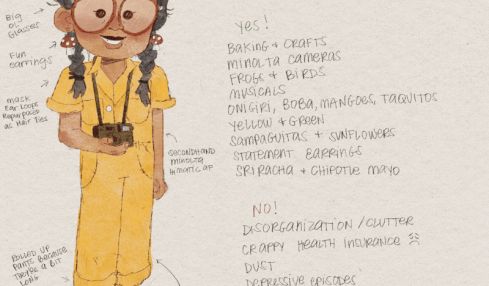 Big
ol'
Glasses
Fun
earrings
mask
Ear Loops
Repurposed
as Hair Ties
SECONDHAND
MINOLTA
HIMATIC AF
ROLLED UP
PANTS BECAUSE
THEY'RE A BIT
LONG
Yes!
BAKING + CRAFTS
MINOLTA CAMERAS
FROGS + BIRDS
MUSICALS
ONIGIRI, BOBA, MANGOES, TAQUITOS
YELLOW + GREEN
SAMPAGUITAS + SUNFLOWERS
STATEMENT EARRINGS
SRIRACHA + CHIPOTLE MAYO
NO!
DISORGANIZATION / CLUTTER
CRAPPY HEALTH INSURANCE
DUST
DEPRESSIVE EPISODES